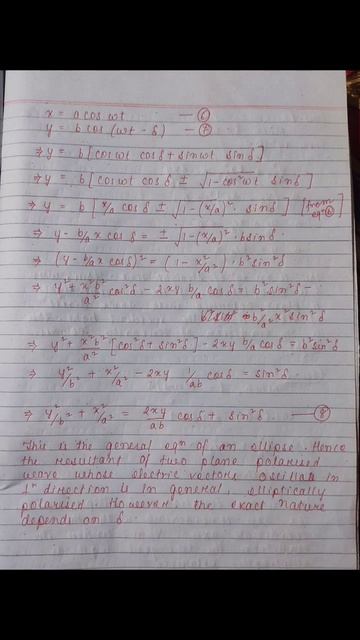 x = a cos wt — (6)
y = b cos (wt - δ) — (7)
⇒ y = b [cos wt cos δ + sin wt sin δ]
⇒ y = b [cos wt cos δ ± √1-cos²wt sin δ]
⇒ y = b [x/a cos δ ± √1-(x/a)² sin δ] [from eqⁿ(6)]
⇒ y - b/a x cos δ = ± √1-(x/a)² · b sin δ
⇒ (y - b/a x cos δ)² = (1 - x²/a²) · b² sin² δ
⇒ y² + x²b²/a² cos² δ - 2xy b/a cos δ = b² sin² δ -
b²/a² x² sin² δ
⇒ y² + x²b²/a² [cos² δ + sin² δ] - 2xy b/a cos δ = b² sin² δ
⇒ y²/b² + x²/a² - 2xy 1/ab cos δ = sin² δ
⇒ y²/b² + x²/a² = 2xy/ab cos δ + sin² δ — (8)
This is the general eqⁿ of an ellipse. Hence
the resultant of two plane polarised
wave whose electric vectors oscillate in
1ⁿ direction is in general, elliptically
polarised. However, the exact nature
depends on δ.